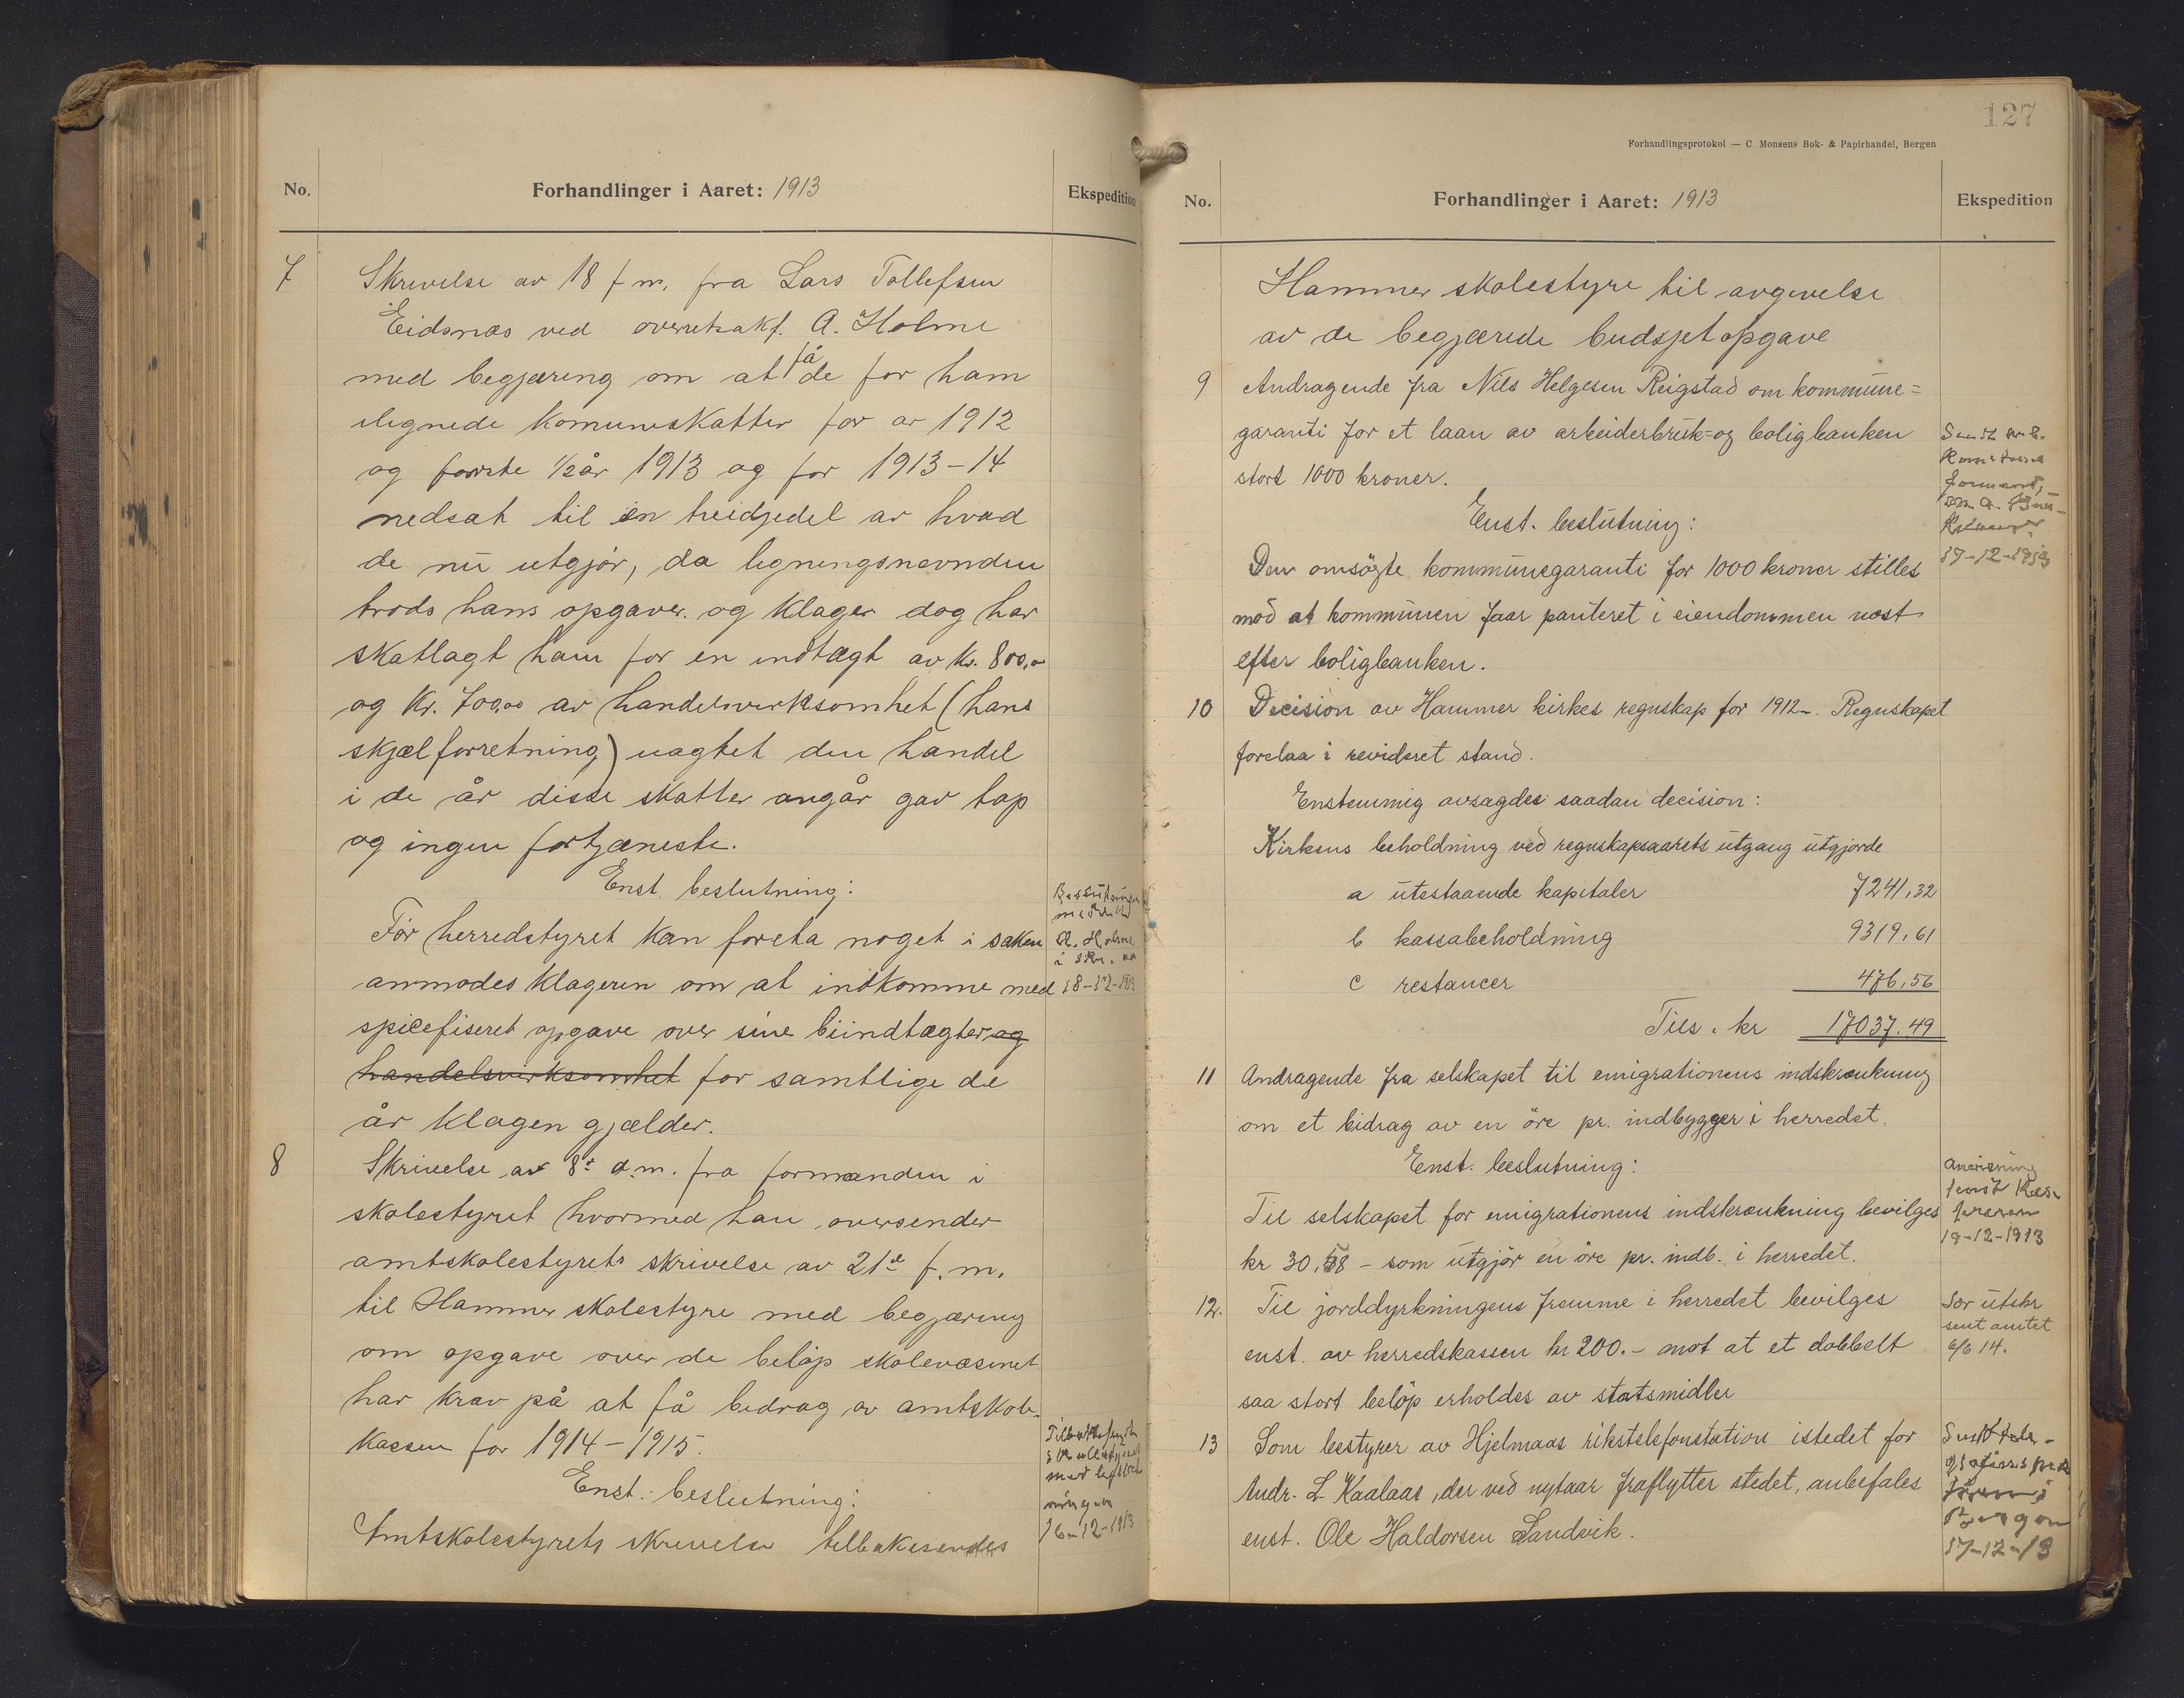 No.
Forhandlinger i Aaret: 1913
Ekspedition
7
Skrivelse av 18 f.m. fra Lars Tollefsen
Eidsnæs ved overretssakf. A. Holme
med begjæring om at få de for ham
ilegnede Komuneskatter for år 1912
og første 1/2 år 1913 og for 1913-14
nedsat til en treidjedel av hvad
de nu utgjør, da ligningsnevnden
trods hans opgaver og klager dog har
skatlagt ham for en indtægt av Kr. 800,00
og Kr. 700,00 av handelsvirksomhet (hans
skjælforretning) uagtet den handel
i de år disse skatter angår gav tap
og ingen fortjæneste.
Enst. beslutning:
Før herredstyret kan foreta noget i saken
anmodes klageren om at indkomme med
spicefiseret opgave over sine biindtægter og
handelsvirksomhet for samtlige de
år klagen gjælder.
Beslutningen
meddelt
A. Holme
i skr. av
18-12-1913
8
Skrivelse av 8de d.m. fra formanden i
skolestyret hvormed han oversender
amtskolestyrets skrivelse av 21de f.m.
til Hammer skolestyre med begjæring
om opgave over de beløp skolevæsenet
har krav på at få bidrag av amtskole-
kassen for 1914-1915.
Enst. beslutning:
Amtskolestyrets skrivelse tilbakesendes
16-12-1913
127
Forhandlingsprotokol — C. Monsens Bok- & Papirhandel, Bergen
No.
Forhandlinger i Aaret: 1913
Ekspedition
Hammer skolestyre til avgivelse
av de begjærede budsjetopgave
9
Andragende fra Nils Helgesen Reigstad om kommune=
garanti for et laan av arbeiderbruk=og boligbanken
stort 1000 kroner.
Enst. beslutning:
Den omsögte kommunegaranti for 1000 kroner stilles
mod at kommunen faar panteret i eiendommen næst
efter boligbanken.
17-12-1913
10
Decision av Hammer kirkes regnskap for 1912-. Regnskapet
forelaa i revideret stand.
Enstemmig avsagdes saadan decision:
Kirkens beholdning ved regnskapsaarets utgang utgjorde
a utestaaende kapitaler 7241,32
b kassabeholdning 9319,61
c restancer 476,56
Tils. kr 17037.49
11
Andragende fra selskapet til emigrationens indskrænkning
om et bidrag av en öre pr. indbygger i herredet.
Enst. beslutning:
Til selskapet for emigrationens indskrænkning bevilges
kr 30,58 - som utgjör en öre pr. indb. i herredet.
Anvisning
sendt Kas-
sereren
18-12-1913
12.
Til jorddyrkningens fremme i herredet bevilges
enst. av herredskassen kr 200.- mot at et dobbelt
saa stort belöp erholdes av statsmidler
Sær utskr
sent amtet
6/6 14.
13
Som bestyrer av Hjelmaas rikstelefonstation istedet for
Andr. L. Kaalaas, der ved nytaar fraflytter stedet, anbefales
enst. Ole Haldorsen Sandvik.
Sendt tele-
Bergen
17-12-13